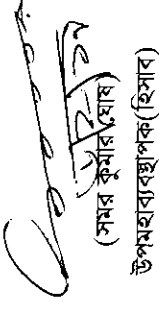 (সমর কুমার ঘোষ)
উপমহাব্যবস্থাপক(হিসাব)